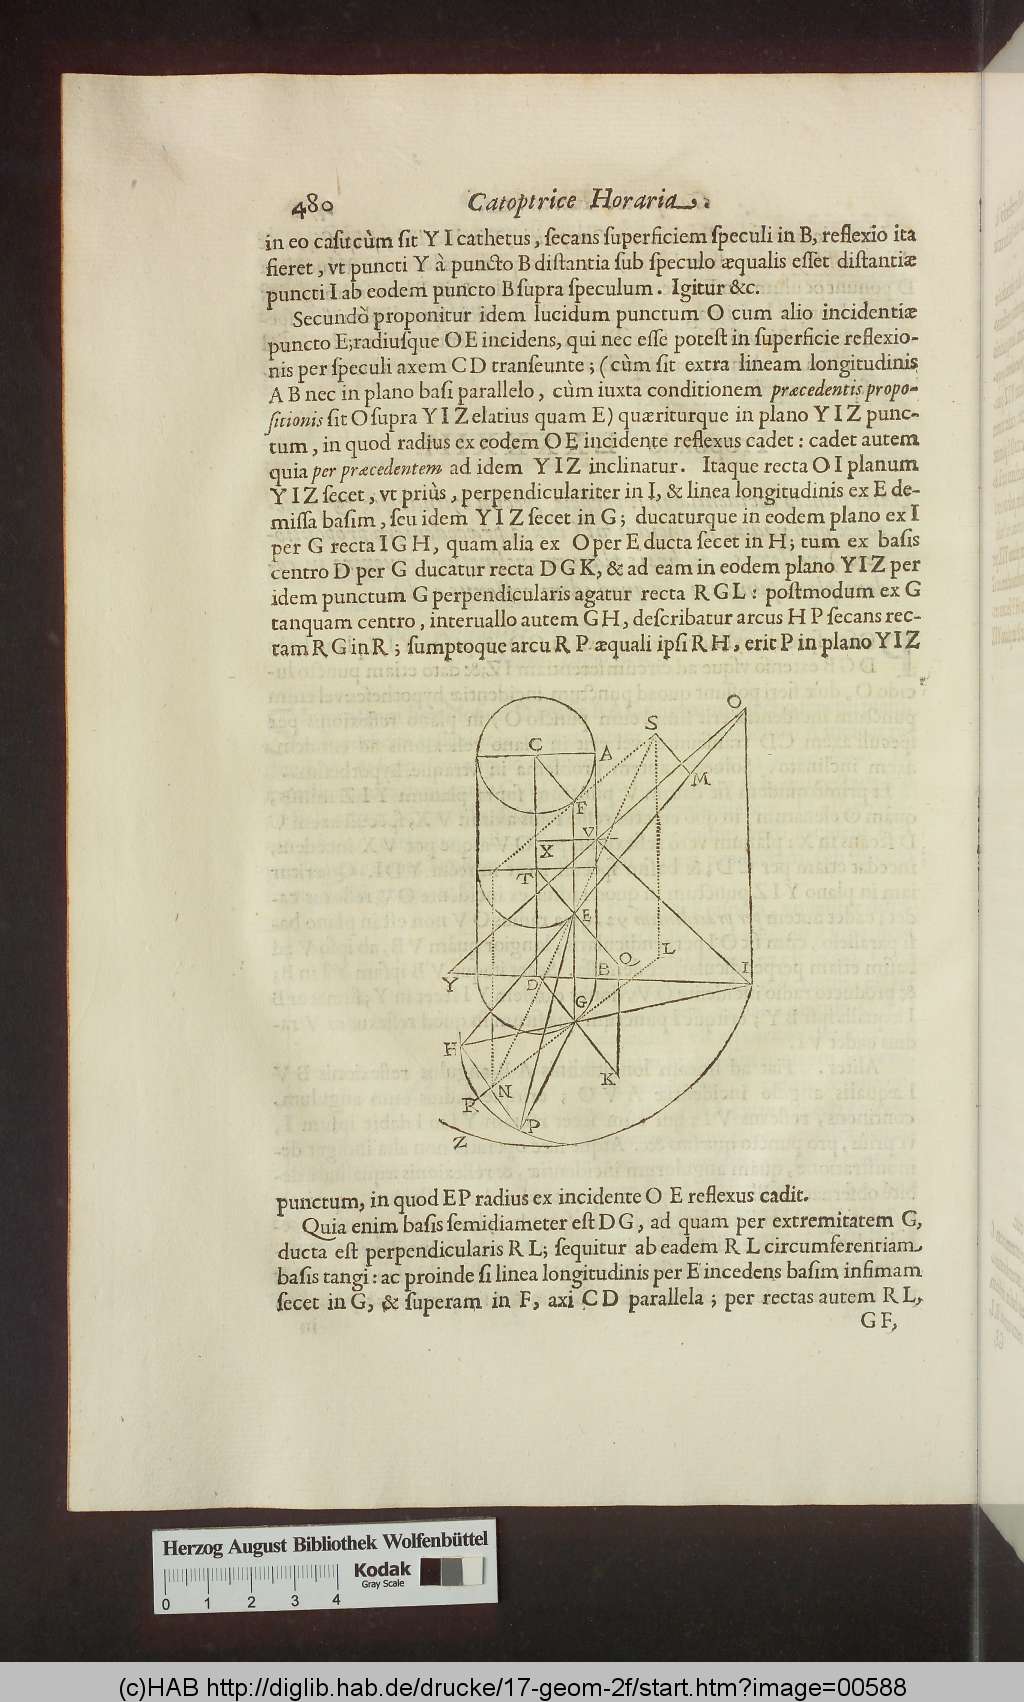 480 Catoptrice Horaria.
in eo casu cùm sit Y I cathetus, secans superficiem speculi in B, reflexio ita
fieret, vt puncti Y à puncto B distantia sub speculo æqualis esset distantiæ
puncti I ab eodem puncto B supra speculum. Igitur &c.
Secundò proponitur idem lucidum punctum O cum alio incidentiæ
puncto E; radiusque O E incidens, qui nec esse potest in superficie reflexio-
nis per speculi axem C D transeunte; (cùm sit extra lineam longitudinis
A B nec in plano basi parallelo, cùm iuxta conditionem præcedentis propo-
sitionis sit O supra Y I Z elatius quam E) quæriturque in plano Y I Z punc-
tum, in quod radius ex eodem O E incidente reflexus cadet: cadet autem
quia per præcedentem ad idem Y I Z inclinatur. Itaque recta O I planum
Y I Z secet, vt priùs, perpendiculariter in I, & linea longitudinis ex E de-
missa basim, seu idem Y I Z secet in G; ducaturque in eodem plano ex I
per G recta I G H, quam alia ex O per E ducta secet in H; tum ex basis
centro D per G ducatur recta D G K, & ad eam in eodem plano Y I Z per
idem punctum G perpendicularis agatur recta R G L: postmodum ex G
tanquam centro, interuallo autem G H, describatur arcus H P secans rec-
tam R G in R; sumptoque arcu R P æquali ipsi R H, erit P in plano Y I Z
O
S
C
A
M
F
V
X
T
E
L
Q
B
I
Y
D
G
H
K
N
R
P
Z
punctum, in quod E P radius ex incidente O E reflexus cadit.
Quia enim basis semidiameter est D G, ad quam per extremitatem G,
ducta est perpendicularis R L; sequitur ab eadem R L circumferentiam
basis tangi: ac proinde si linea longitudinis per E incedens basim infimam
secet in G, & superam in F, axi C D parallela; per rectas autem R L,
G F,
Herzog August Bibliothek Wolfenbüttel
Kodak
Gray Scale
0 1 2 3 4
(c)HAB http://diglib.hab.de/drucke/17-geom-2f/start.htm?image=00588